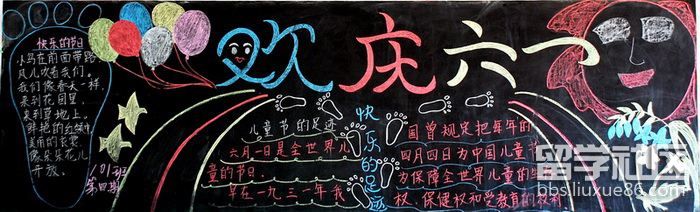 欢庆六一
快乐的节日
小鸟在前面带路
风儿吹着我们。
我们像春天一样,
来到花园里,
来到草地上。
鲜艳的红领巾
美丽的衣裳,
像朵朵花儿
开放。
1.01班
第四期
儿童节的足迹
六月一日是全世界儿
童的节日.
早在一九三一年我
快乐的足迹
国曾规定把每年的
四月四日为中国儿童节
为保障全世界儿童的生
权、保健权和受教育的权利
留学社区
bbs.liuxue86.com